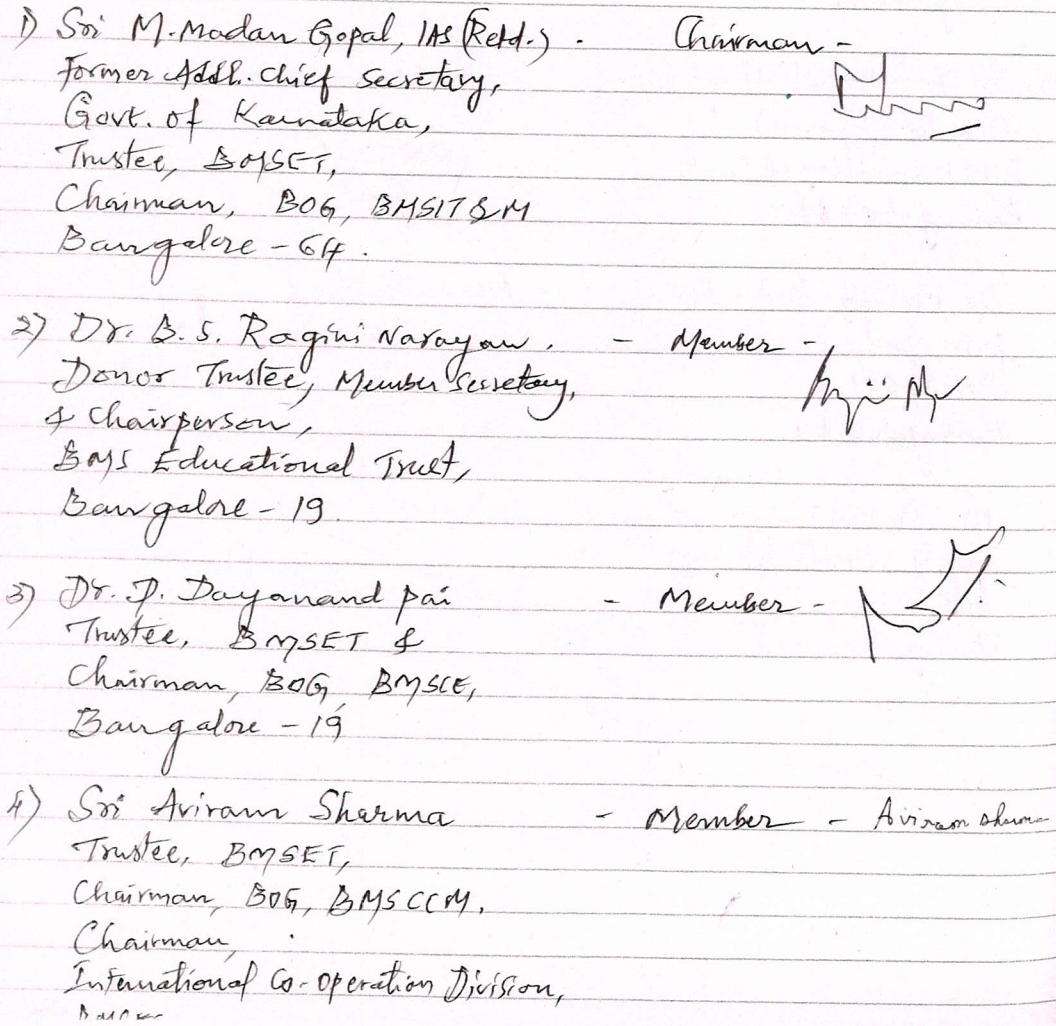 1) Sri M. Madan Gopal, IAS (Retd.) - Chairman -
Former Addl. Chief Secretary,
Govt. of Karnataka,
Trustee, BMSET,
Chairman, BOG, BMSIT&M
Bangalore - 64.
2) Dr. B. S. Ragini Narayan. - Member -
Donor Trustee, Member Secretary,
& Chairperson,
BMS Educational Trust,
Bangalore - 19.
3) Dr. P. Dayanand Pai - Member -
Trustee, BMSET &
Chairman, BOG, BMSCE,
Bangalore - 19
4) Sri Aviram Sharma - Member - Aviram Sharma
Trustee, BMSET,
Chairman, BOG, BMSCCM.
Chairman,
International Co-operation Division,